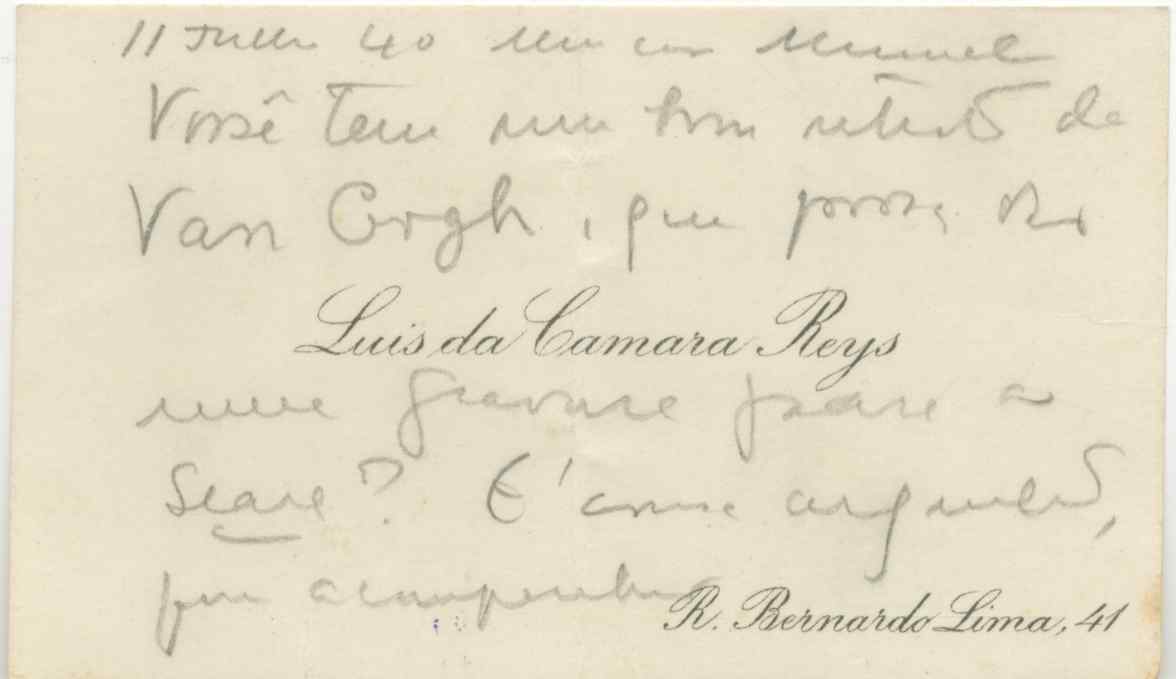 11 Julho 40 Meu caro Manuel
Vossê tem um bom retrato de
Van Gogh, que possa dar
Luis da Camara Reys
uma gravura para a
Seara? E'
acompanhar
R. Bernardo Lima, 41